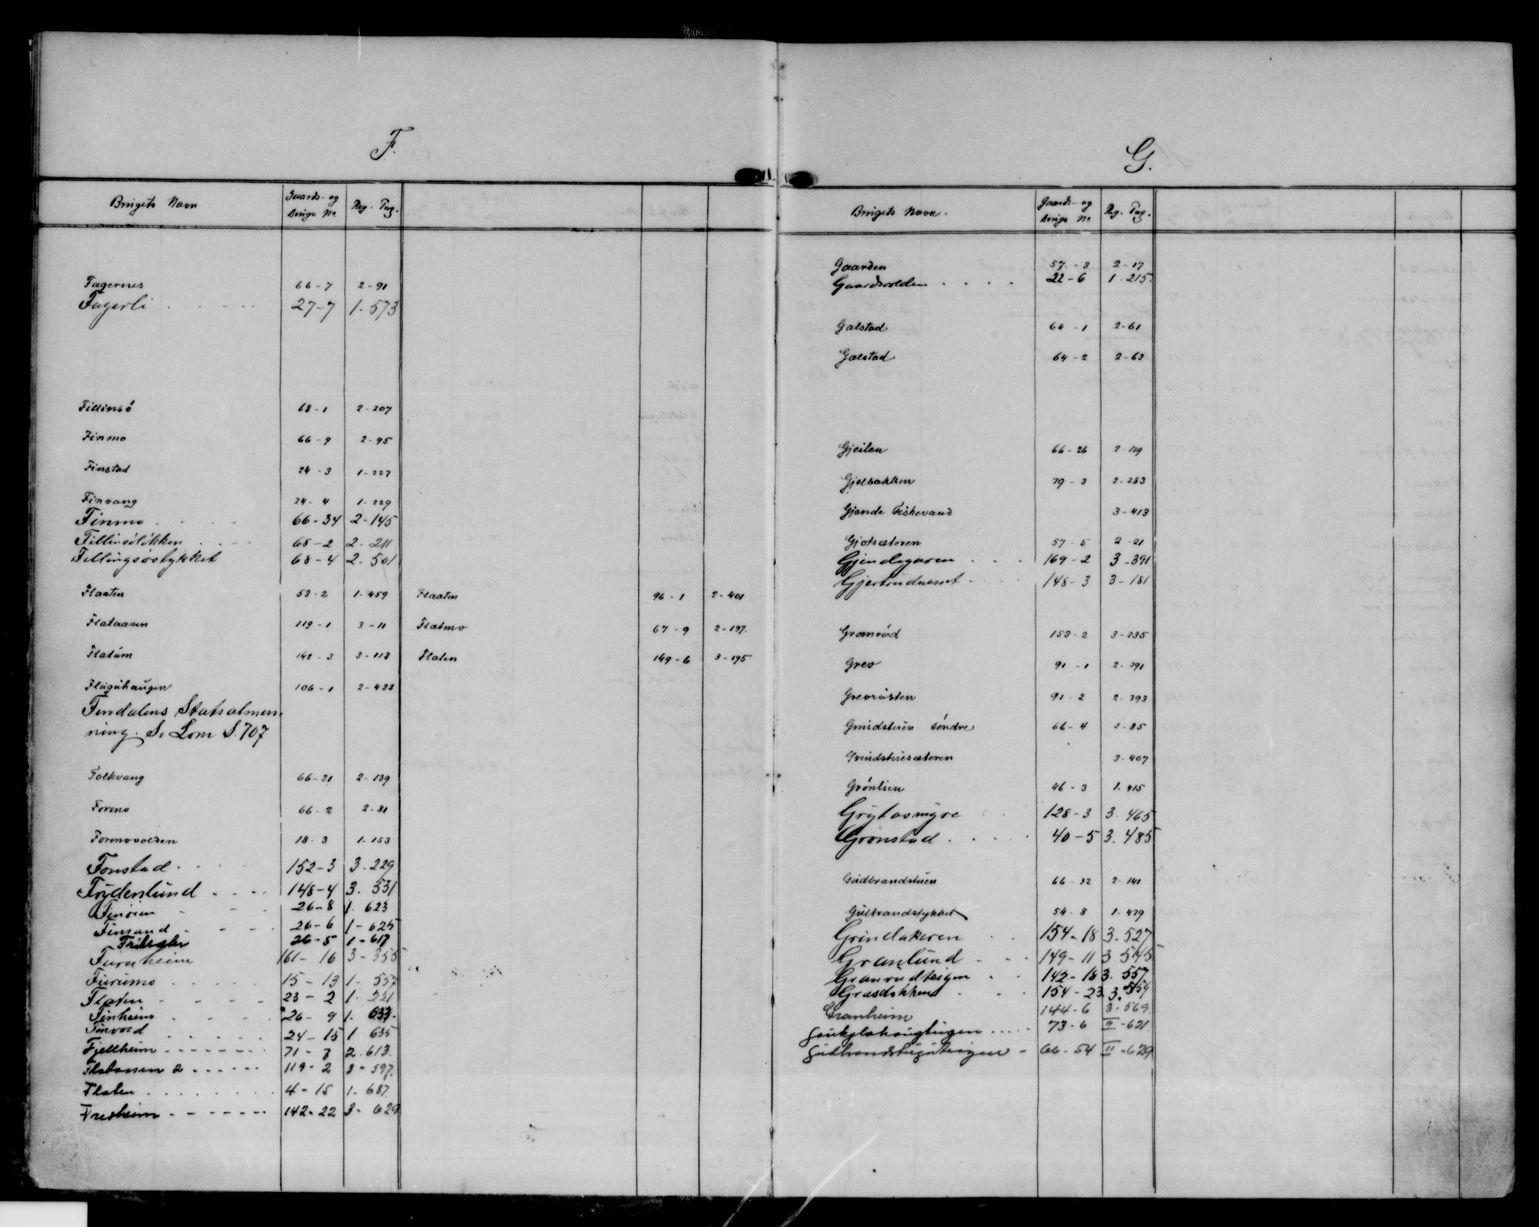 F.
Brugets Navn Gaards- og Brugs No Reg. Pag.
Fagernes 66-7 2-91
Fagerli 27-7 1-573
Fillinsö 68-1 2-207
Finmo 66-9 2-95
Finstad 24-3 1-227
Finvang 24-4 1-229
Finmo 66-34 2-145
68-2 2-211
Fillingsöstykket 68-4 2-501
Flaaten 53-2 1-459 Flaaten 96-1 2-401
Flataasen 119-1 3-11 Flatmo 67-9 2-197
Flatum 142-3 3-113 Flaten 149-6 3-195
Flåguhaugen 106-1 2-433
Findalens Statsalmen
ning. Se Lom S. 707
Folkvang 66-31 2-139
Formo 66-2 2-81
Formovolden 18-3 1-153
Fonstad 152-3 3-229
Frydenlund 148-4 3-531
26-8 1-623
Finsand 26-6 1-625
26-5 1-617
Furuheim 161-16 3-355
Furumo 15-13 1-557
Flaten 23-2 1-221
Finheim 26-9 1-633
Finvold 24-15 1-635
Fjellheim 71-3 2-613
Flataasen 2 119-2 3-597
Flaten 4-15 1-687
Fredheim 142-22 3-629
G.
Brugets Navn. Gaards- og Brugs No Reg. Pag.
Gaarden 57-3 2-17
Gaardsvolden 22-6 1-215
Galstad 64-1 2-61
Galstad 64-2 2-63
Gjeilen 66-26 2-129
Gjelbakken 79-3 2-283
Gjende Fiskevand 3-413
Gjotsæteren 57-5 2-21
Gjendegaren 169-2 3-391
Gjertrudneset 148-3 3-181
Granrud 153-2 3-235
Grev 91-1 2-391
Grevrusten 91-2 2-393
Grindstuen söndre 66-4 2-85
Grindstuesæteren 3-407
Grönlien 46-3 1-415
Grytosmyre 128-3 3-465
Grönstad 40-5 3-485
Gudbrandstuen 66-32 2-141
Gulbrandstykket 54-8 1-479
Grindakeren 154-18 3-527
Granlund 149-11 3-545
Granrudteigen 142-16 3-557
Græsbakken 154-23 3-559
Granheim 144-6 3-569
Gaukplohaugteigen 73-6 II-621
66-54 II-629